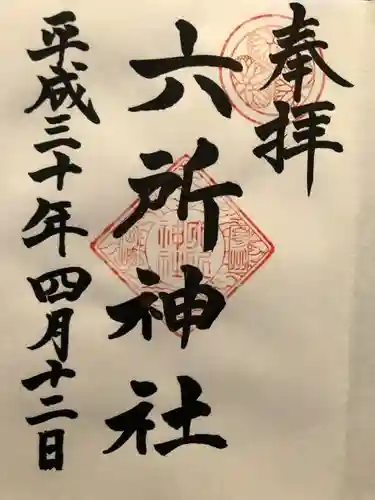 奉拝
六所神社
平成三十年四月十二日